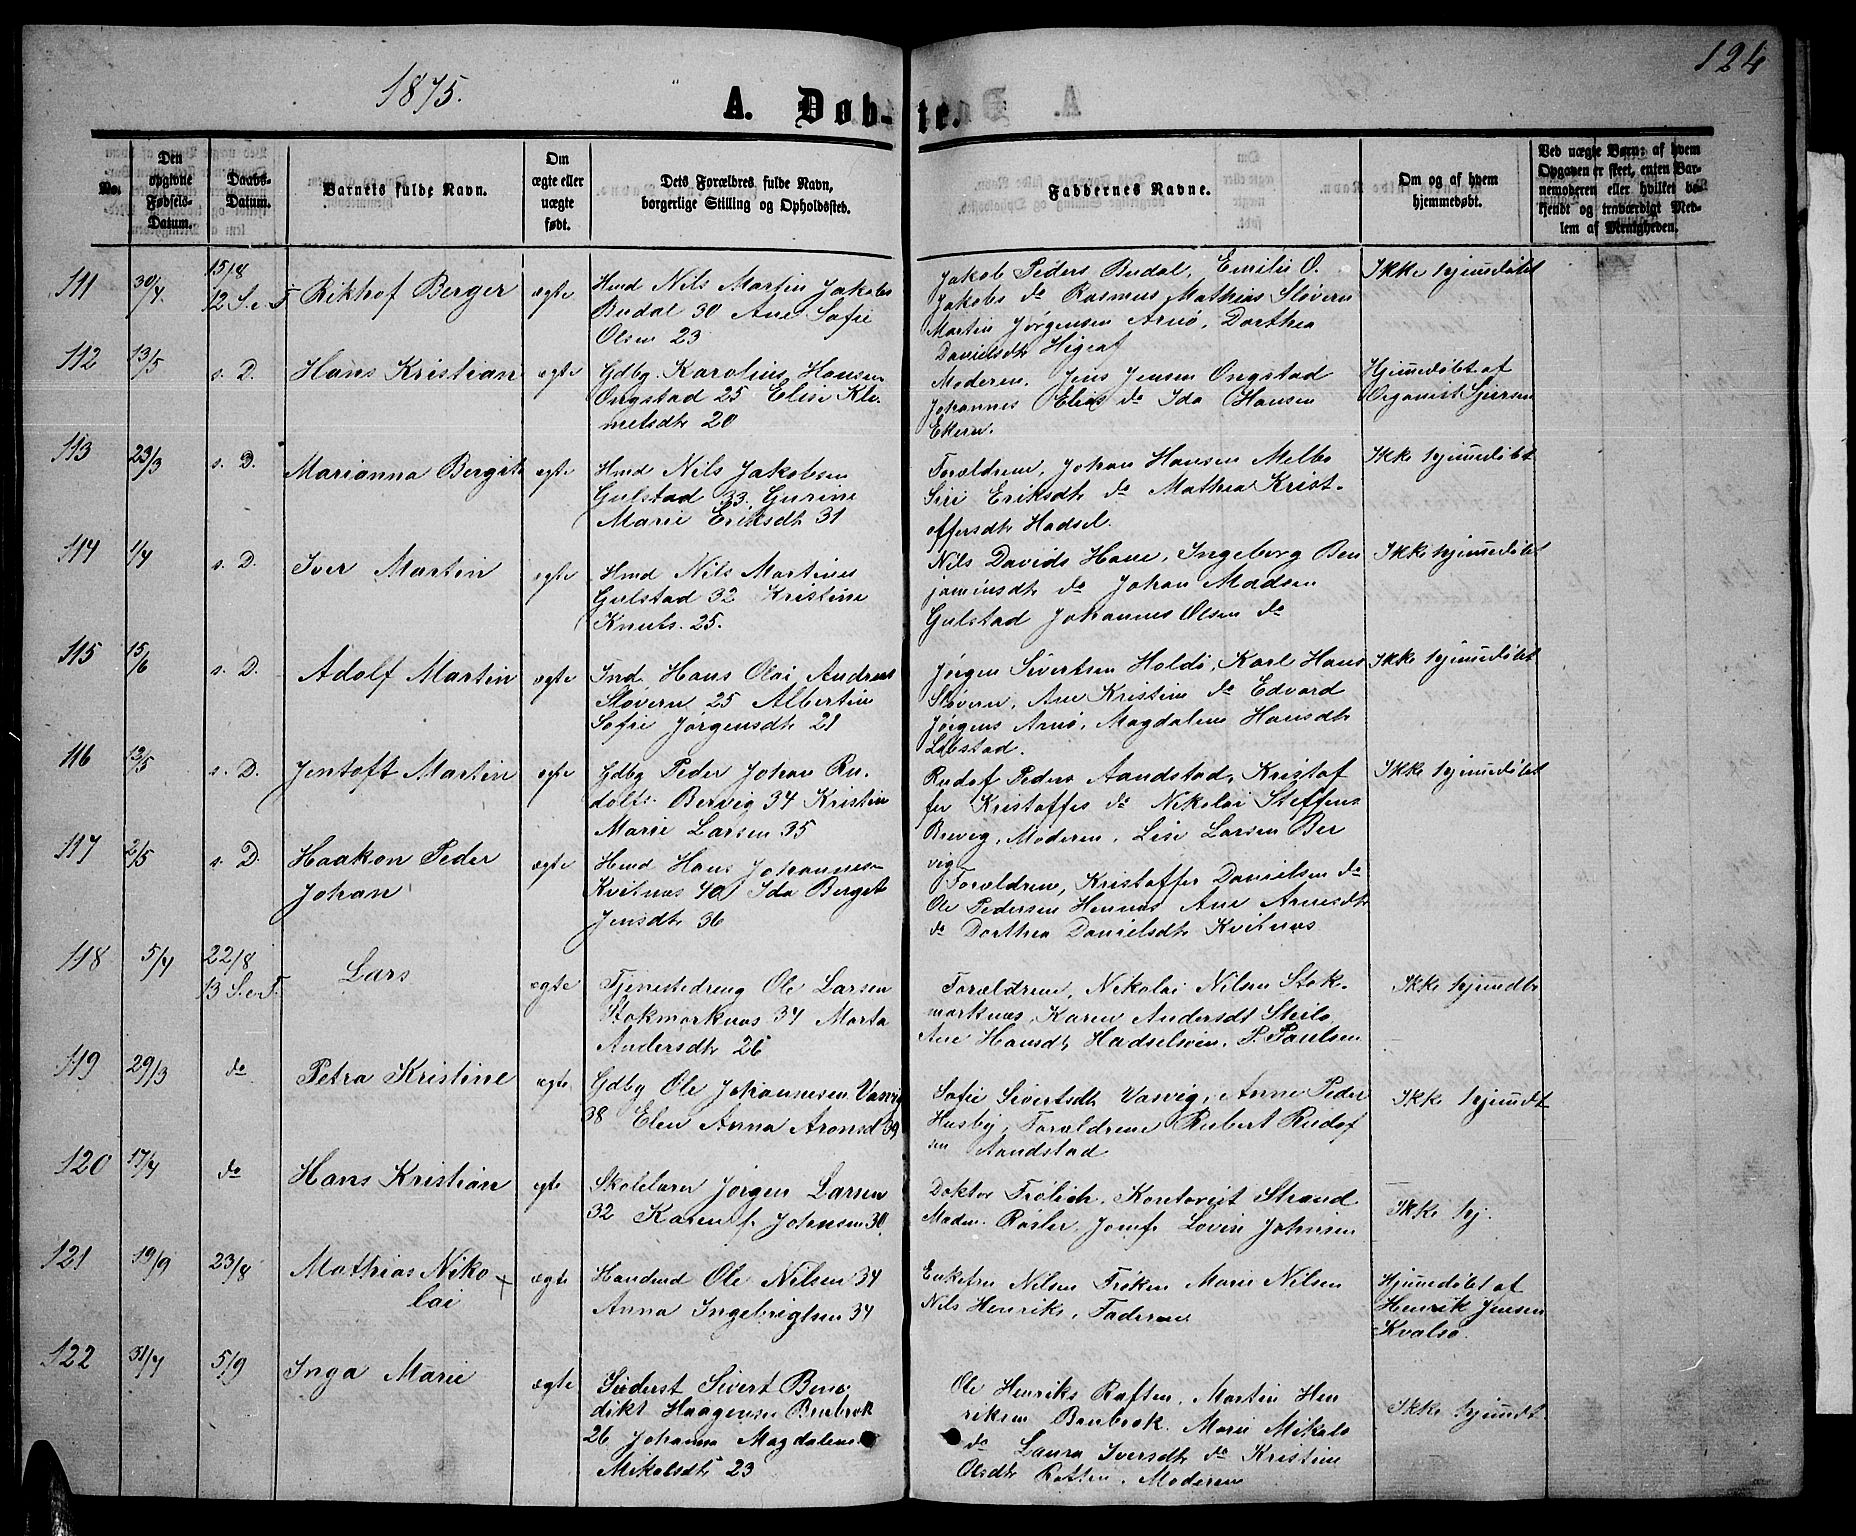 124
1875.
A. Døbte.
No.
Den opgivne Fødsels-Datum.
Daabs-Datum.
Barnets fulde Navn.
Om ægte eller uægte født.
Dets Forældres fulde Navn, borgerlige Stilling og Opholdssted.
Faddernes Navne.
Om og af hvem hjemmedøbt.
Ved uægte Børn: af hvem Opgaven er skeet, enten Barnemoderen eller hvilket bekjendt og troværdigt Medlem af Menigheden.
111 30/4 15/8 12 S.e.T Rikhof Berger ægte
Hmd Nils Martin Jakobs
Budal 30 Ane Sofie
Olsen 23
Jakob Peders Budal, Emilie O.
Jakobs do Rasmus Mathias Sløvern
Martin Jørgensen Arnø, Dorthea
Davielsdtr
Ikke hjemedøbt
112 13/5 s. D. Hans Kristian ægte
Gdbg. Karolius Hansen
Ongstad 25 Elise Kle
metsdtr 20
Moderen, Jens Jensen Ongstad
Johannes Elias do Ida Hansen
Ekern.
Hjemedøbt af
Organist
113 23/3 s. D. Marianna Bergit ægte
Hmd Nils Jakobsen
Gulstad 33 Gurine
Marie Eriksdtr 31
Forældrene, Johan Hansen Melbo
Siri Eriksdtr do Mathea Krist-
offersdtr Hadsel.
Ikke hjemedøbt
114 s. D. Iver Martin ægte
Hmd Nils Martines
Gulstad 32 Kristine
Knuts. 25.
Nils Davids Hane, Ingeborg Ben
jaminsdtr do Johan Madsen
Gulstad Johannes Olsen do
Ikke hjemedøbt
115 15/6 s. D. Adolf Martin ægte
Ind. Hans Olai Andreas
Sløvern 25 Albertin
Sofie Jørgensdtr 21
Jørgen Sivertsen Holdø, Karl Hans
Sløvern, Ane Kristine do Edvard
Jørgens Arnø, Magdalene Hansdtr
Lekstad.
Ikke hjemedøbt
116 s. D. Jentoft Martin ægte
Gdbg Peder Johan Ru-
dolfs. Bervig 34 Kristin
Marie Larsen 35
Rudof Peders Aandstad, Kristof
fer Kristoffes do Nikolai Steffens
Brevig, Moderen, Lise Larsen Ber
vig
Ikke hjemedøbt
117 2/5 s. D. Haakon Peder
Johan ægte
Hmd Hans Johannes-
Kvitnæs 40 Ida Berget
Jensdtr 36
Forældrene, Kristoffer Danielsen do
Ole Pedersen Hennes Ane Arnesdtr
do Dorthea Danielsdtr Kvitnæs
118 22/8 13 S.e.T. Lars ægte
Tjenestedreng Ole Larsen
Stokmarknæs 34 Marta
Andersdtr 26
Forældrene, Nikolai Nilsen Stok-
marknæs, Karen Andersdt Steilo
Ane Hansdtr P. Paulsen
Ikke hjemdb
119 29/3 do Petra Kristine ægte
Gdbg Ole Johannesen Vasvig
38 Elen Anna Aronsd 39
Sofie Sivertsdtr Vasvig, Anne Peder
Husby, Forældrene Rubert Rudof
sen Aandstad
Ikke hjemdt
120 17/4 do Hans Kristian egte
Skolelærer Jørgen Larsen
32 Karen f. Johnsen 30
Doktor Frølich, Kontorist Strand
Madm. Røsler, Jomf. Lovise Johnsen
Ikke hj.
121 19/9 23/8 Mathias Niko +
lai ægte
Handmd Ole Nilsen 34
Anna Ingebrigtsen 34
Enkefru Nilsen Frøken Marie Nilsen
Nils Henriks, Faderen
Hjemedøbt af
Henrik Jensen
Kvalsø.
122 31/4 5/9 Inga Marie ægte
Sivert Bene
dikt Haagensen
26 Johanna Magdalena
Mikalsdtr 23
Ole Henriks Raften, Martin Hen
riksen Marie Mikals
do Laura Iversdtr do Kristine
Olsdtr Raften, Moderen
Ikke hjemdt